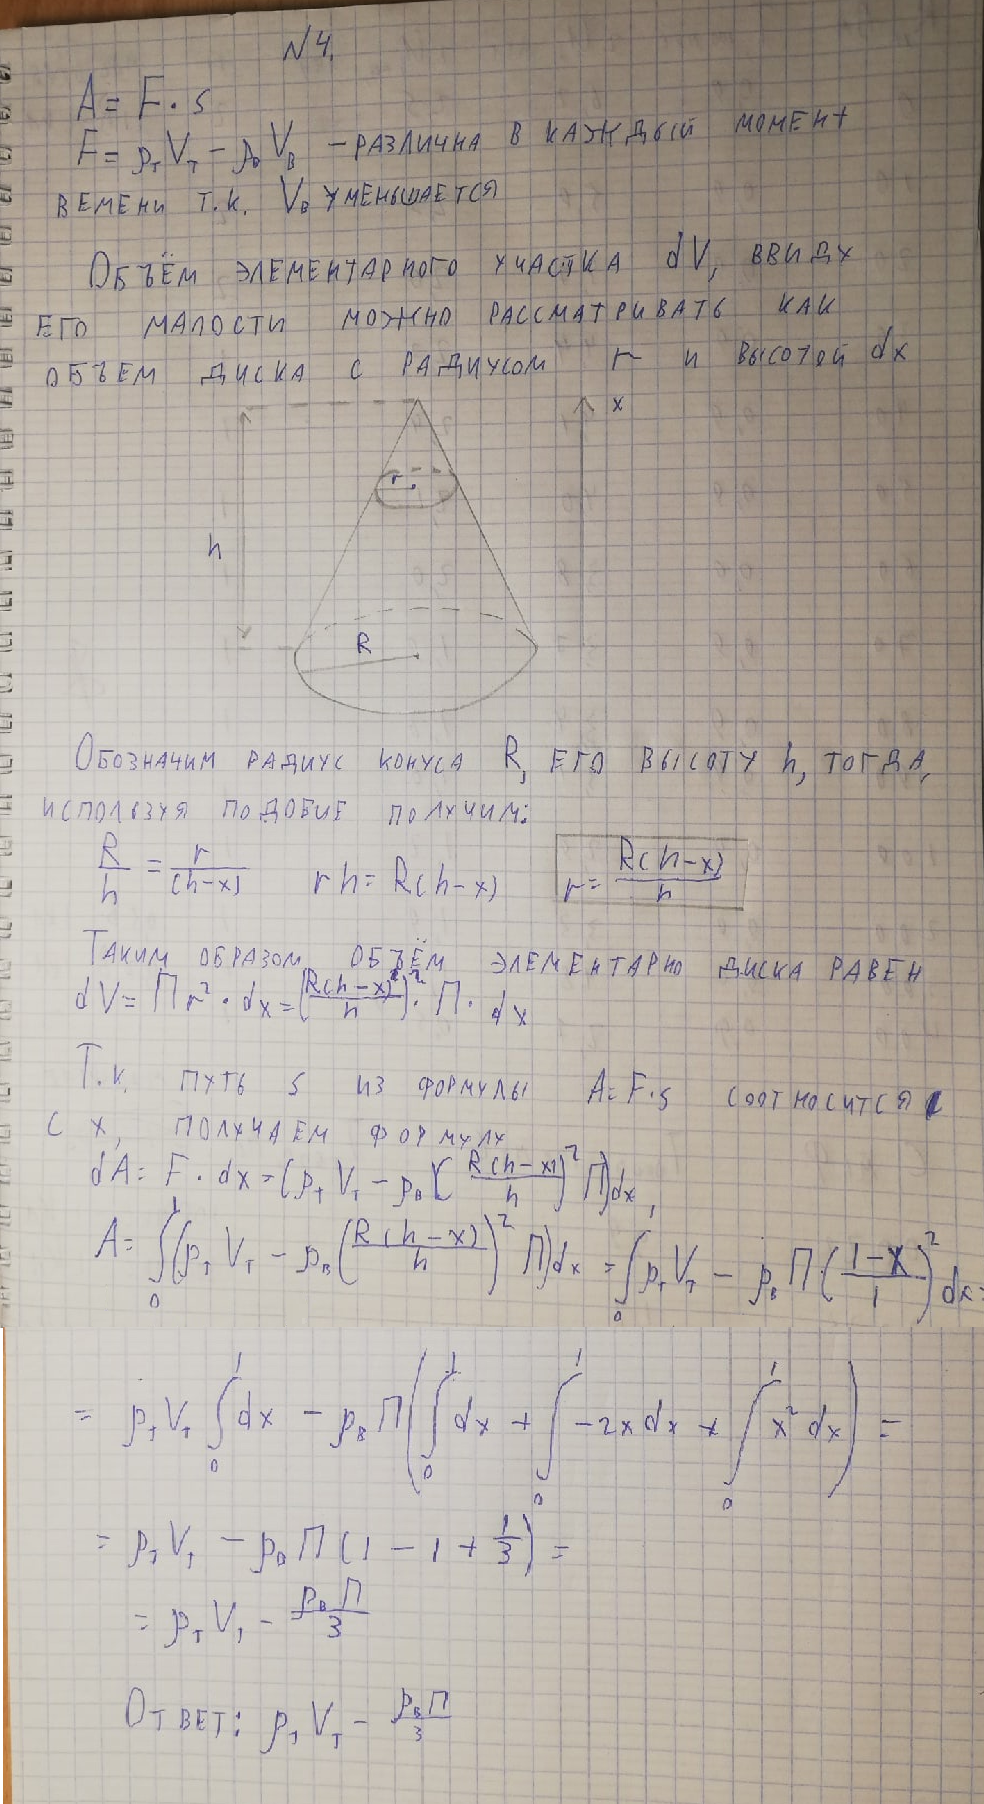 N 4.
A = F · s
F = ρ_т V_т − ρ_в V_в − РАЗЛИЧНА В КАЖДЫЙ МОМЕНТ
ВЕМЕНИ Т.К. V_в УМЕНЬШАЕТСЯ
ОБЪЁМ ЭЛЕМЕНТАРНОГО УЧАСТКА dV, ВВИДУ
ЕГО МАЛОСТИ МОЖНО РАССМАТРИВАТЬ КАК
ОБЪЕМ ДИСКА С РАДИУСОМ r И ВЫСОТОЙ dx
x
r
h
R
ОБОЗНАЧИМ РАДИУС КОНУСА R, ЕГО ВЫСОТУ h, ТОГДА,
ИСПОЛЬЗУЯ ПОДОБИЕ ПОЛУЧИМ:
R/h = r/(h−x) rh = R(h−x) r = R(h−x)/h
ТАКИМ ОБРАЗОМ ОБЪЁМ ЭЛЕМЕНТАРНО ДИСКА РАВЕН
dV = П r² · dx = (R(h−x)/h)² · П · dx
Т.к. ПУТЬ S ИЗ ФОРМУЛЫ A = F·s СООТНОСИТСЯ
С X, ПОЛУЧАЕМ ФОРМУЛУ
dA = F · dx = (ρ_т V_т − ρ_в (R(h−x)/h)² П)dx,
A = ∫₀¹ (ρ_т V_т − ρ_в (R(h−x)/h)² П)dx = ∫₀ ρ_т V_т − ρ_в П · ((1−x)/1)² dx =
= ρ_т V_т ∫₀¹ dx − ρ_в П (∫₀¹ dx + ∫₀¹ −2x dx + ∫₀¹ x² dx) =
= ρ_т V_т − ρ_в П (1 − 1 + 1/3) =
= ρ_т V_т − ρ_в П/3
ОТВЕТ: ρ_т V_т − ρ_в П/3